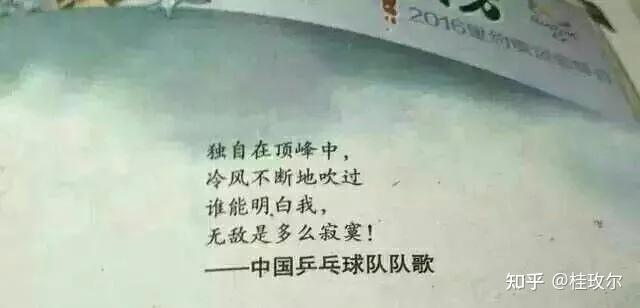 2016里约奥运会
独自在顶峰中,
冷风不断地吹过
谁能明白我,
无敌是多么寂寞!
——中国乒乓球队队歌
知乎 @桂玫尔